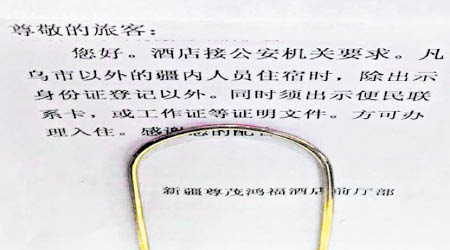 尊敬的旅客:
您好。酒店接公安机关要求。凡
乌市以外的疆内人员住宿时,除出示
身份证登记以外。同时须出示便民联
系卡,或工作证等证明文件。方可办
理入住。感谢您的配合
新疆尊茂鸿福酒店前厅部